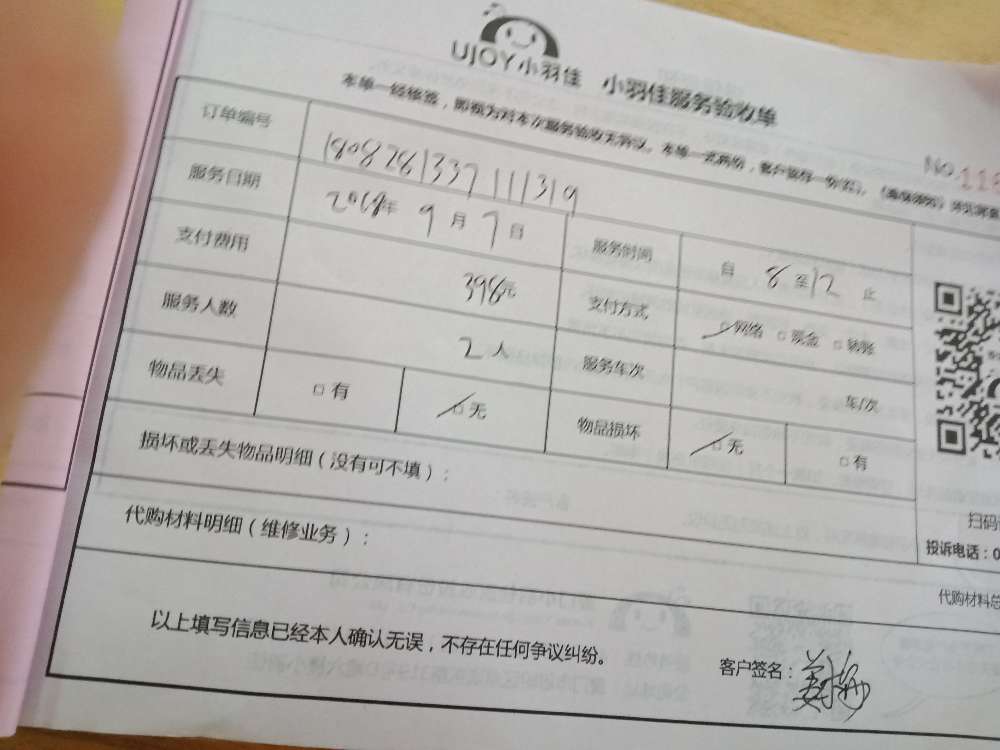 UJOY小羽佳 小羽佳服务验收单
本单一经修签，即视为对本次服务验收无异议。本单一式两份，客户留存一份
NO.118
订单编号 1808281337111319
服务日期 2018年 9月 7日 服务时间 自 8 至 12 止
支付费用 398元 支付方式 □网络 □现金 □转账
服务人数 2人 服务车次 车/次
物品丢失 □有 □无 物品损坏 □无 □有
损坏或丢失物品明细（没有可不填）：
扫码
投诉电话：0
代购材料明细（维修业务）：
代购材料总
以上填写信息已经本人确认无误，不存在任何争议纠纷。
客户签名：